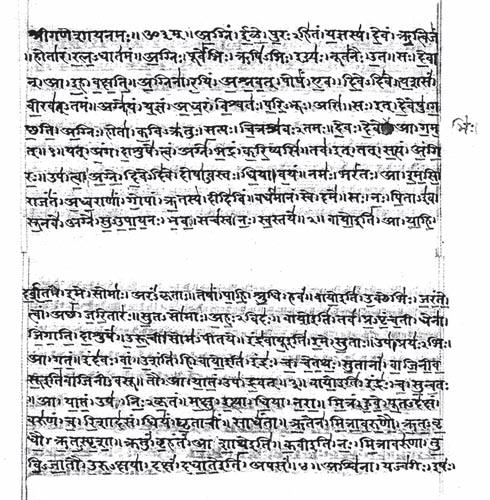 श्रीगणेशायनमः॥ ॐ॥ अग्निं। ईळे। पुरःऽहितं। यज्ञस्य। देवं। ऋत्विजं
।होतारं। रत्नऽधातमं॥ अग्निः। पूर्वेभिः। ऋषिऽभिः। ईड्यः। नूतनैः। उत॥ सः। देवा
न्। आ। इह। वक्षति॥ अग्निना। रयिं। अश्नवत्। पोषं। एव। दिवेऽदिवे॥ यशसं।
वीरवत्ऽतमं॥ अग्ने। यं। यज्ञं। अध्वरं। विश्वतः। परिऽभूः। असि॥ सः। इत्। देवेषु। ग
च्छति॥ अग्निः। होता। कविऽक्रतुः। सत्यः। चित्रश्रवःऽतमः॥ देवः। देवे। आ। गम
भिः।
त्॥१॥ यत्। अंग। दाशुषे। त्वं। अग्ने। भद्रं। करिष्यसि॥ तव। इत्। तत्। सत्यं। अंगि
रः॥ उप। त्वा। अग्ने। दिवेऽदिवे। दोषाऽवस्तः। धिया। वयं॥ नमः। भरंतः। आ। इमसि॥
राजंतं। अध्वराणां। गोपां। ऋतस्य। दीदिविं॥ वर्धमानं। स्वे। दमे॥ सः। नः। पिताऽइव।
सूनवे। अग्ने। सुऽउपायनः। भव॥ सचस्व। नः। स्वस्तये॥२॥ वायो इति। आ। याहि।
दर्शत। इमे। सोमाः। अरंऽकृताः॥ तेषां। पाहि। श्रुधि। हवं॥ वायो इति। उक्थेभिः। जरंते।
त्वां। अच्छ। जरितारः॥ सुतऽसोमाः। अहःऽविदः॥ वायो इति। तव। प्रऽपृंचती। धेना।
जिगाति। दाशुषे॥ उरूची। सोमऽपीतये॥ इंद्रवायू इति। इमे। सुताः। उप। प्रयःऽभिः।
आ। गतं॥ इंदवः। वां। उशंति। हि॥ वायो इति। इंद्रः। च। चेतथः। सुतानां। वाजिनीव
सू इति वाजिनीऽवसू॥ तौ। आ। यातं। उप। द्रवत्॥३॥ वायो इति। इंद्रः। च। सुन्वतः
।आ। यातं। उप। निःऽकृतं॥ मक्षु। इत्था। धिया। नरा॥ मित्रं। हुवे। पूतऽदक्षं।
वरुणं। च। रिशादसं॥ धियं। घृताचीं। साधंता॥ ऋतेन। मित्रावरुणौ। ऋतऽवृ
धौ। ऋतऽस्पृशा॥ क्रतुं। बृहंतं। आशाथे इति॥ कवी इति। नः। मित्रावरुणा। तु
विऽजातौ। उरुऽक्षया॥ दक्षं। दधाते इति। अपसं॥४॥ अश्विना। यज्वरीः। इषः।